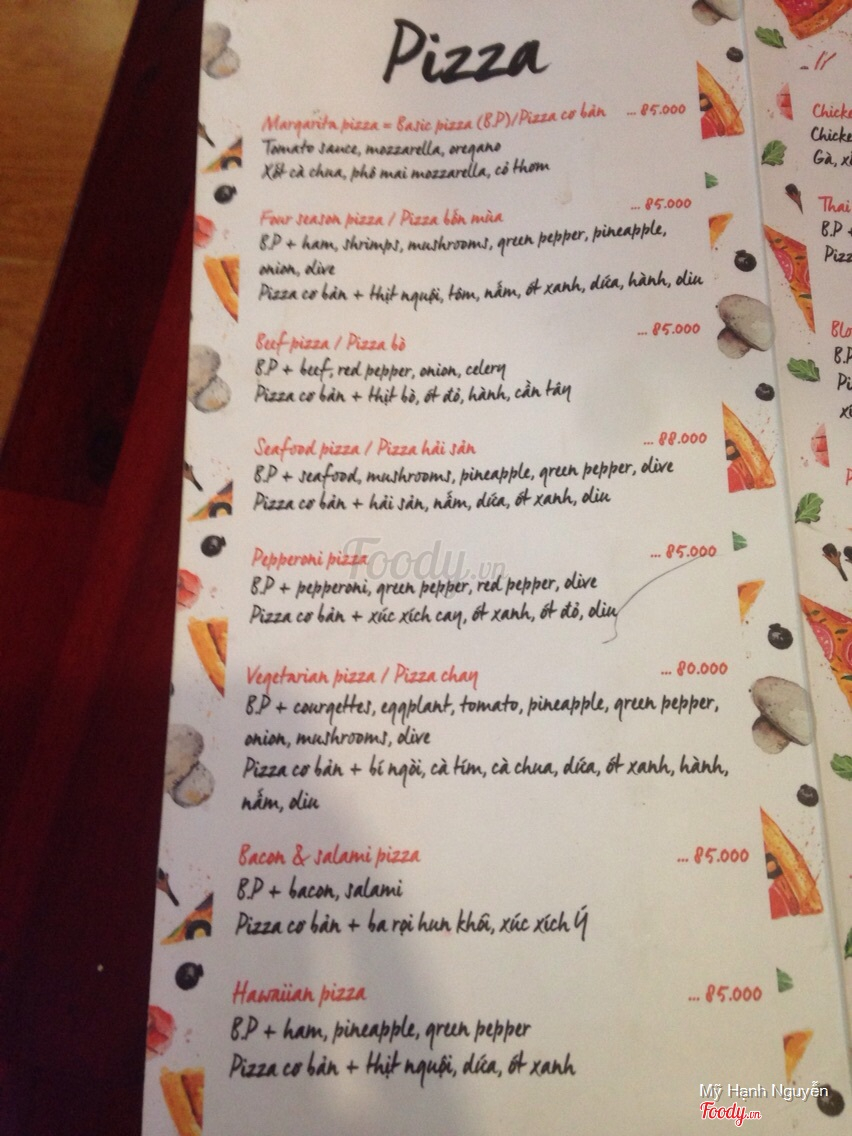 Pizza
Margarita pizza = Basic pizza (B.P)/Pizza cơ bản ... 85.000
Tomato sauce, mozzarella, oregano
Xốt cà chua, phô mai mozzarella, cỏ thơm
Four season pizza / Pizza bốn mùa ... 85.000
B.P + ham, shrimps, mushrooms, green pepper, pineapple,
onion, olive
Pizza cơ bản + thịt nguội, tôm, nấm, ớt xanh, dứa, hành, oliu
Beef pizza / Pizza bò ... 85.000
B.P + beef, red pepper, onion, celery
Pizza cơ bản + thịt bò, ớt đỏ, hành, cần tây
Seafood pizza / Pizza hải sản ... 88.000
B.P + seafood, mushrooms, pineapple, green pepper, olive
Pizza cơ bản + hải sản, nấm, dứa, ớt xanh, oliu
Pepperoni pizza ... 85.000
B.P + pepperoni, green pepper, red pepper, olive
Pizza cơ bản + xúc xích cay, ớt xanh, ớt đỏ, oliu
Vegetarian pizza / Pizza chay ... 80.000
B.P + courgettes, eggplant, tomato, pineapple, green pepper,
onion, mushrooms, olive
Pizza cơ bản + bí ngòi, cà tím, cà chua, dứa, ớt xanh, hành,
nấm, oliu
Bacon & salami pizza ... 85.000
B.P + bacon, salami
Pizza cơ bản + ba rọi hun khói, xúc xích Ý
Hawaiian pizza ... 85.000
B.P + ham, pineapple, green pepper
Pizza cơ bản + thịt nguội, dứa, ớt xanh
Gà,
Thai
B.P +
B.P
Foody.vn
Mỹ Hạnh Nguyễn
Foody.vn